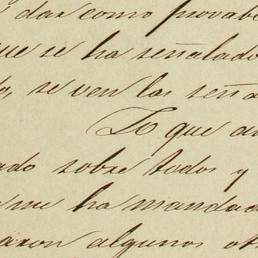 dar como provab
que se ha señalado
se ven las seña
Lo que a
ado sobre todos y
me ha mandad
aron algunos ot